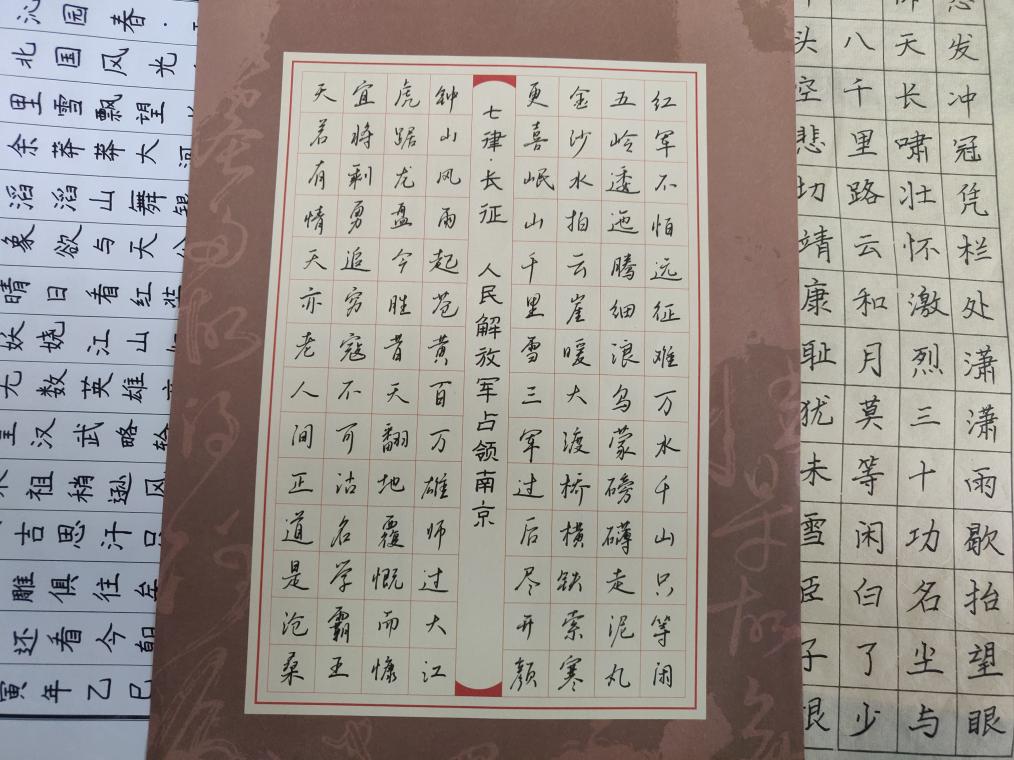 怒发冲冠凭栏处潇潇雨歇抬望眼
仰天长啸壮怀激烈三十功名尘与
八千里路云和月莫等闲白了少
头空悲切靖康耻犹未雪臣子恨
红军不怕远征难万水千山只等闲
五岭逶迤腾细浪乌蒙磅礴走泥丸
金沙水拍云崖暖大渡桥横铁索寒
更喜岷山千里雪三军过后尽开颜
七律·长征 人民解放军占领南京
钟山风雨起苍黄百万雄师过大江
虎踞龙盘今胜昔天翻地覆慨而慷
宜将剩勇追穷寇不可沽名学霸王
天若有情天亦老人间正道是沧桑
沁园春·
北国风光
里雪飘望
余莽莽大河
滔滔山舞银
象欲与天公
晴日看红装
妖娆江山
无数英雄
汉武略输
祖稍逊风
吉思汗只
雕俱往矣
还看今朝
寅年乙巳